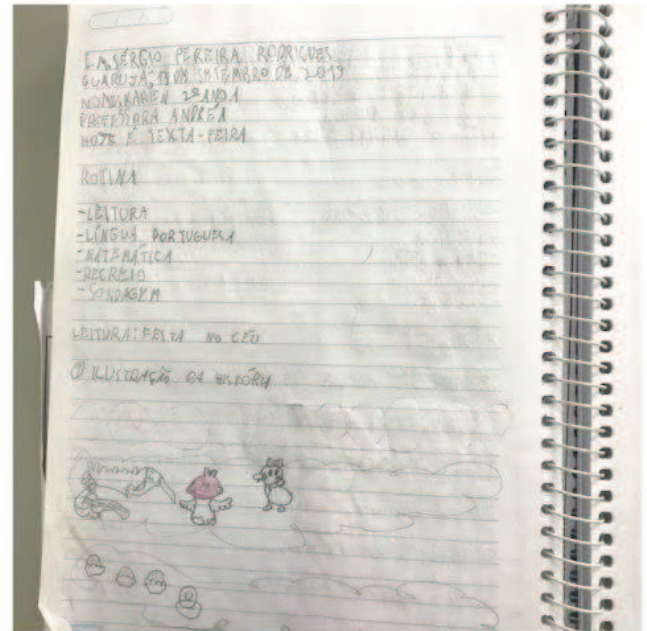 E.M. SÉRGIO PEREIRA RODRIGUES
GUARUJÁ, 13 DE SETEMBRO DE 2019
NOME: KAREN 2º ANO A
PROFESSORA ANDRÉA
HOJE É SEXTA-FEIRA
ROTINA
-LEITURA
-LÍNGUA PORTUGUESA
-MATEMÁTICA
-RECREIO
-SONDAGEM
LEITURA: FESTA NO CÉU
① ILUSTRAÇÃO DA HISTÓRIA